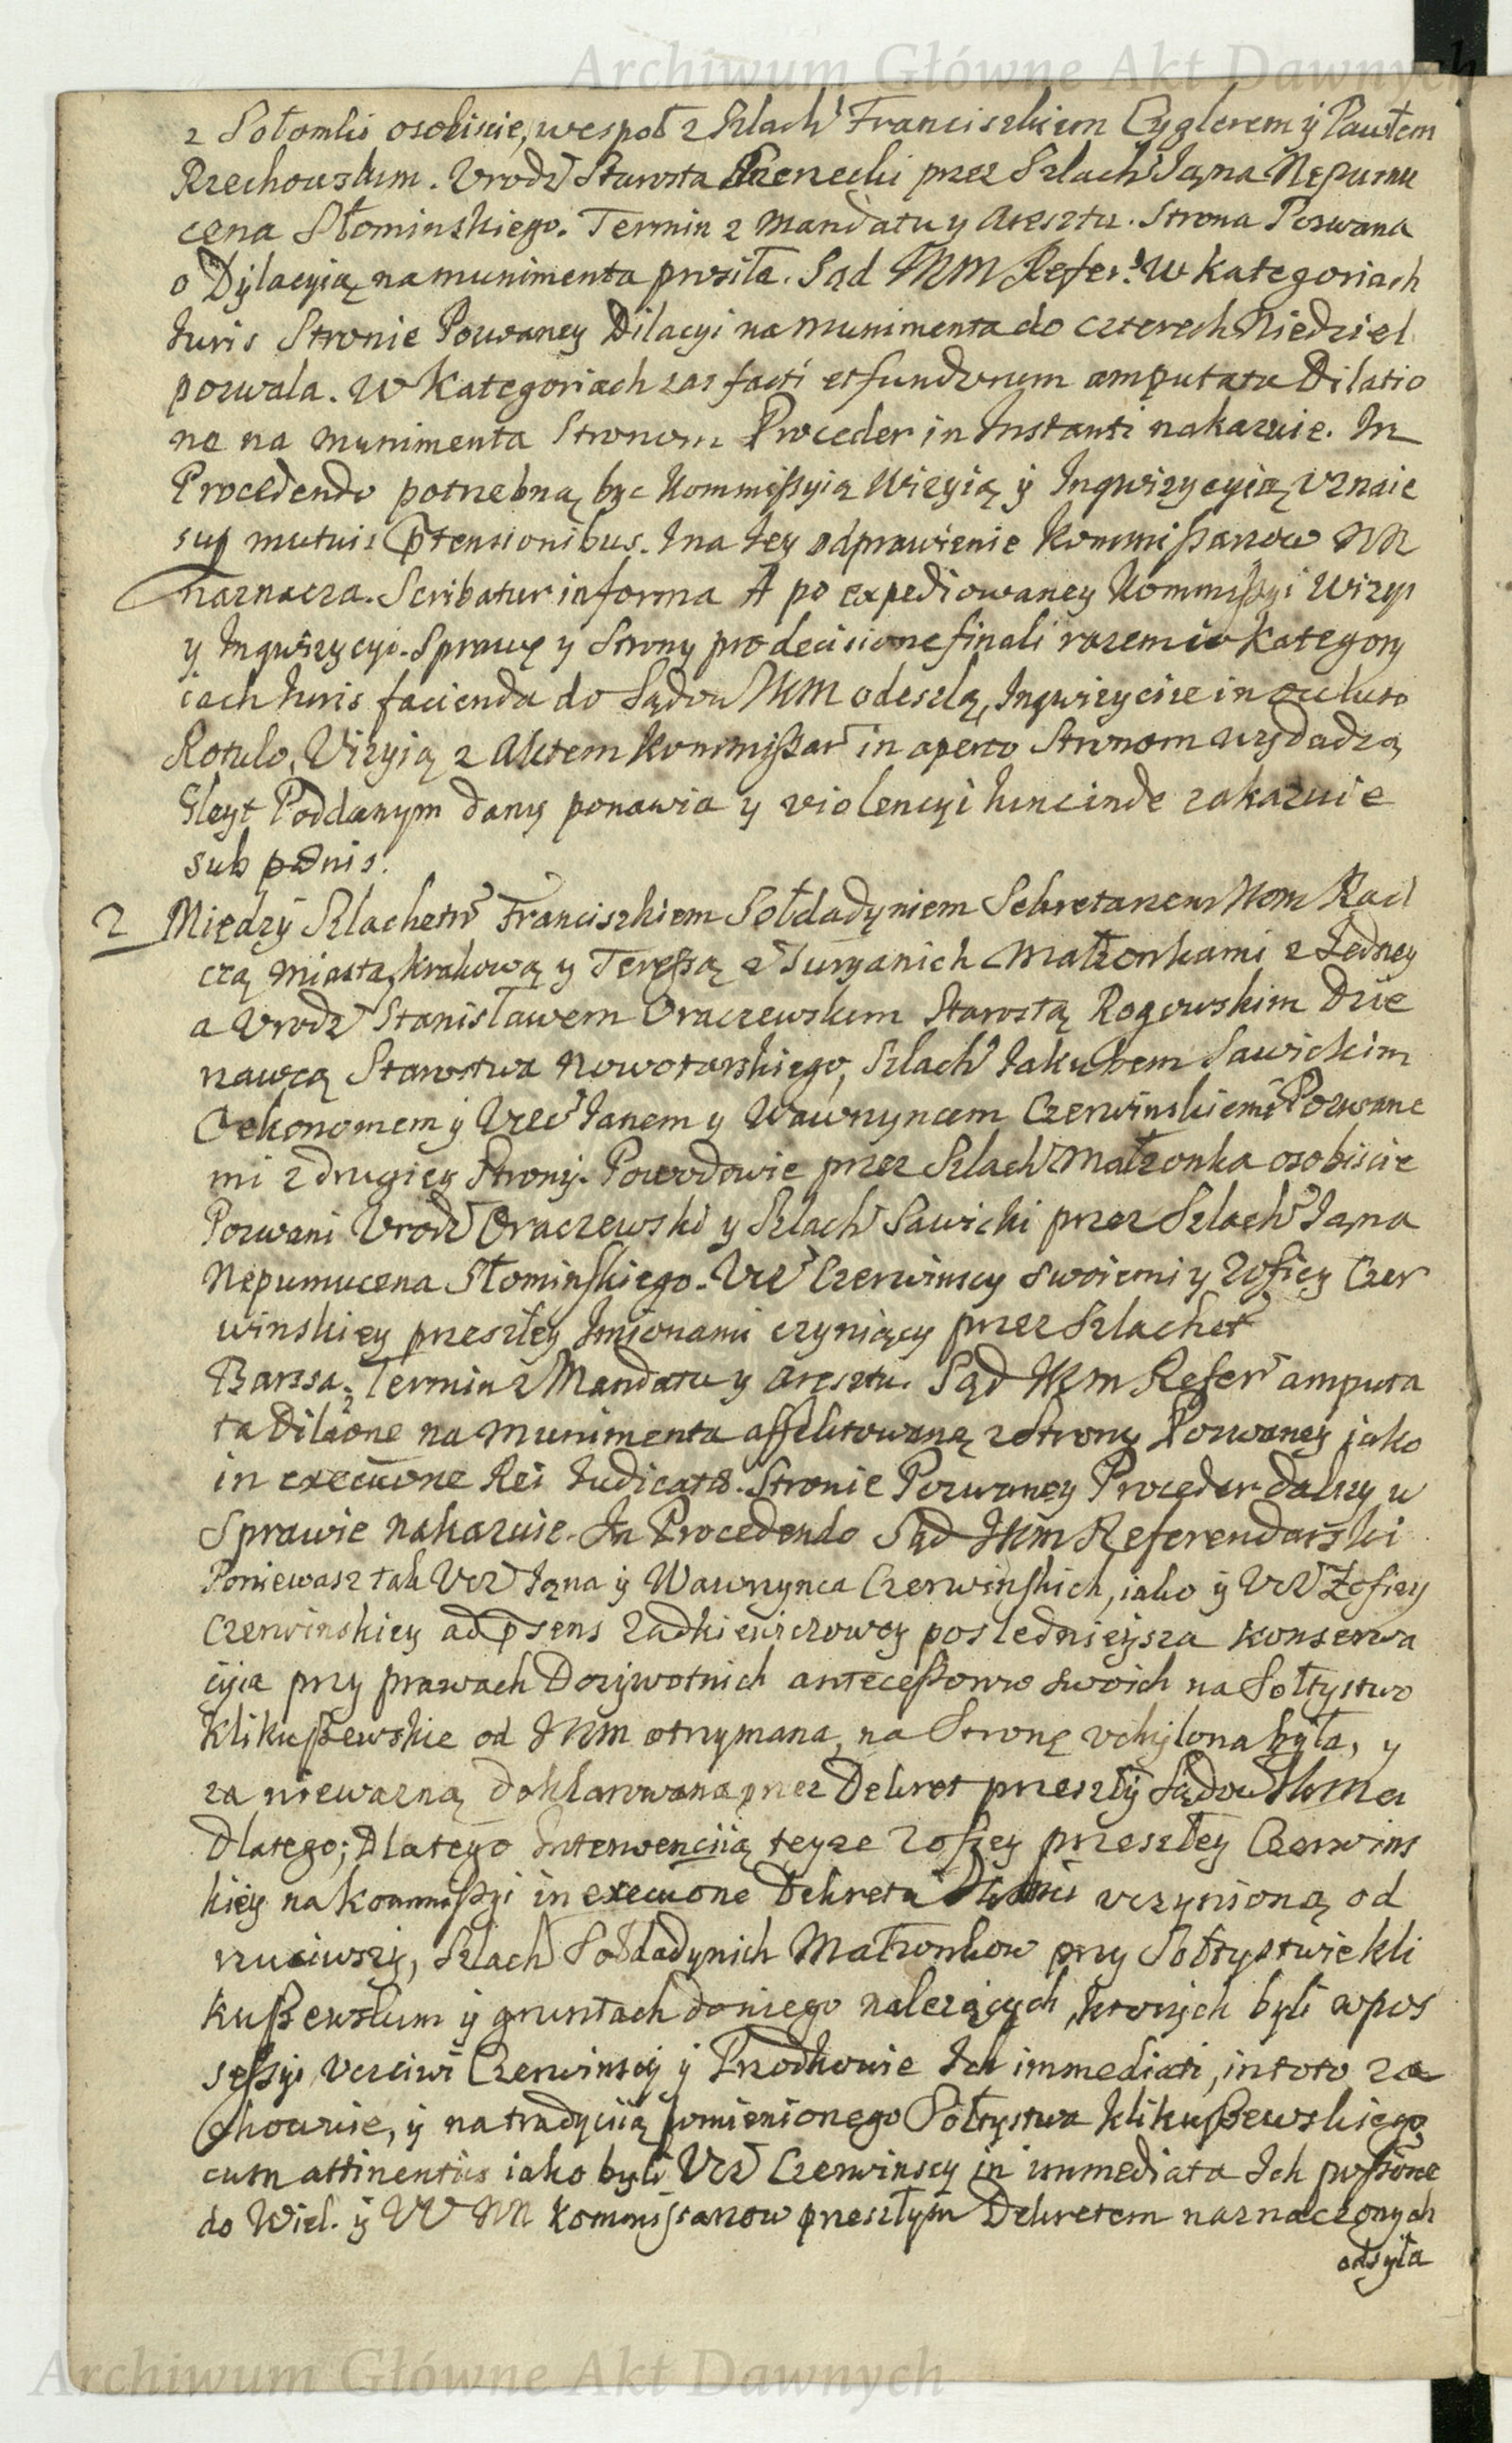 Archiwum Główne Akt Dawnych
z Sołomki osobiscie, wespoł z Szlach Franciszkiem Cyglerem ÿ Pawłem
Rzechowskim. Vrodz Starosta przez Szlach Jana Nepumu
cena Słominskiego. Termin z Mandatu y Aresztu. Strona Pozwana
o Dylacyią na munimenta prosiła. Sąd JKM Refer: w kategoriach
Juris Stronie Pozwaney Dilacyi na munimenta do czterech Niedziel
pozwala. W Kategoriach zas facti et fundorum amputata Dilatio
ne na munimenta Stronom Proceder in Instanti nakazuie. In
Procedendo potrzebną byc Kommissyią Wizyią ÿ Inqwizycyią Vznaie
sup mutuis Ptensionibus. Ina tey odprawienie Kommissarzow NN
Naznacza. Scribatur in forma A po expediowaney Kommissyi Wizyi
y Inqwizycyi. Sprawę y Strony pro decisione finali razem w Kategory
iach Juris facienda do Sądow JKM odeszlą, Inqwizycije in occluso
Rotulo, Vizyią z Aktem Kommissar in aperto Stronom wydadzą
Gleyt Poddanym dany ponawia y violencyi hincinde zakazuie
sub pœnis.
2 Między Szlachetn Franciszkiem Sołdadyniem Sekretarzem JKM Rad
czą Miasta Krakowa y Teressą z Małzonkami z Jedney
a Vrodz Stanisławem Oraczewskim Starostą Rogowskim Dzie
rzawcą Starostwa Nowotarskiego, Szlach Jakubem Sawickim
Oekonomem ÿ Vczc Janem y Wawrzyncem Czerwinskiemi Pozwane
mi z drugiey Strony. Powodowie przez Szlach Małzonka osobiscie
Pozwani Vrodz Oraczewski y Szlach Sawicki przez Szlach Jana
Nepumucena Słominskiego. Vcz Czerwinscy swoiemi y Zofiey Czer
winskiey przeszłey Imionami czyniący przez Szlachet
Barssa. Termin z Mandatu y Aresztu. Sąd JKM Refer amputa
ta Dilaone na Munimenta affektowaną z Strony Pozwaney jako
in execuone Rei Judicatæ. Stronie Pozwaney Proceder dalszy w
Sprawie nakazuie. In Procedendo Sąd JKM Referendarski
Poniewasz tak Vcz Jana ÿ Wawrzynca Czerwinskich, iako ÿ Vcz Zofiey
Czerwinskiey ad psens Zadkiewiczowey poslednieysza konserwa
cyia przy prawach Dozywotnich antecessorow swoich na Sołtystwo
Klikuszewskie od JKM otrzymana, na Stronę vchylona była, y
za niewazną deklarowana przez Dekret przeszłÿ Sądow JKM a
Dlatego; Dlatego Interwenciią teyze Zofiey przeszłey Czerwins
kiey na kommissyi in execuone Dekretu vczynioną od
rzuciwszy, Szlach Sołdadynich Małzonkow przy Sołtystwie kli
kuszewskim ÿ gruntach doniego nalezących, ktorych byli w pos
sessyi Vczciwi Czerwinscy ÿ Przodkowie Ich immediati, in toto za
chowuie, ÿ na tradyciią pomienionego Sołtystwa Klikuszewskiego
cum attinentiis iako byli Vcz Czerwinscy in immediata Ich possone
do Wiel. ÿ VV NN Kommissarzow przeszłym Dekretem naznaczonych
odsyła
Archiwum Główne Akt Dawnych